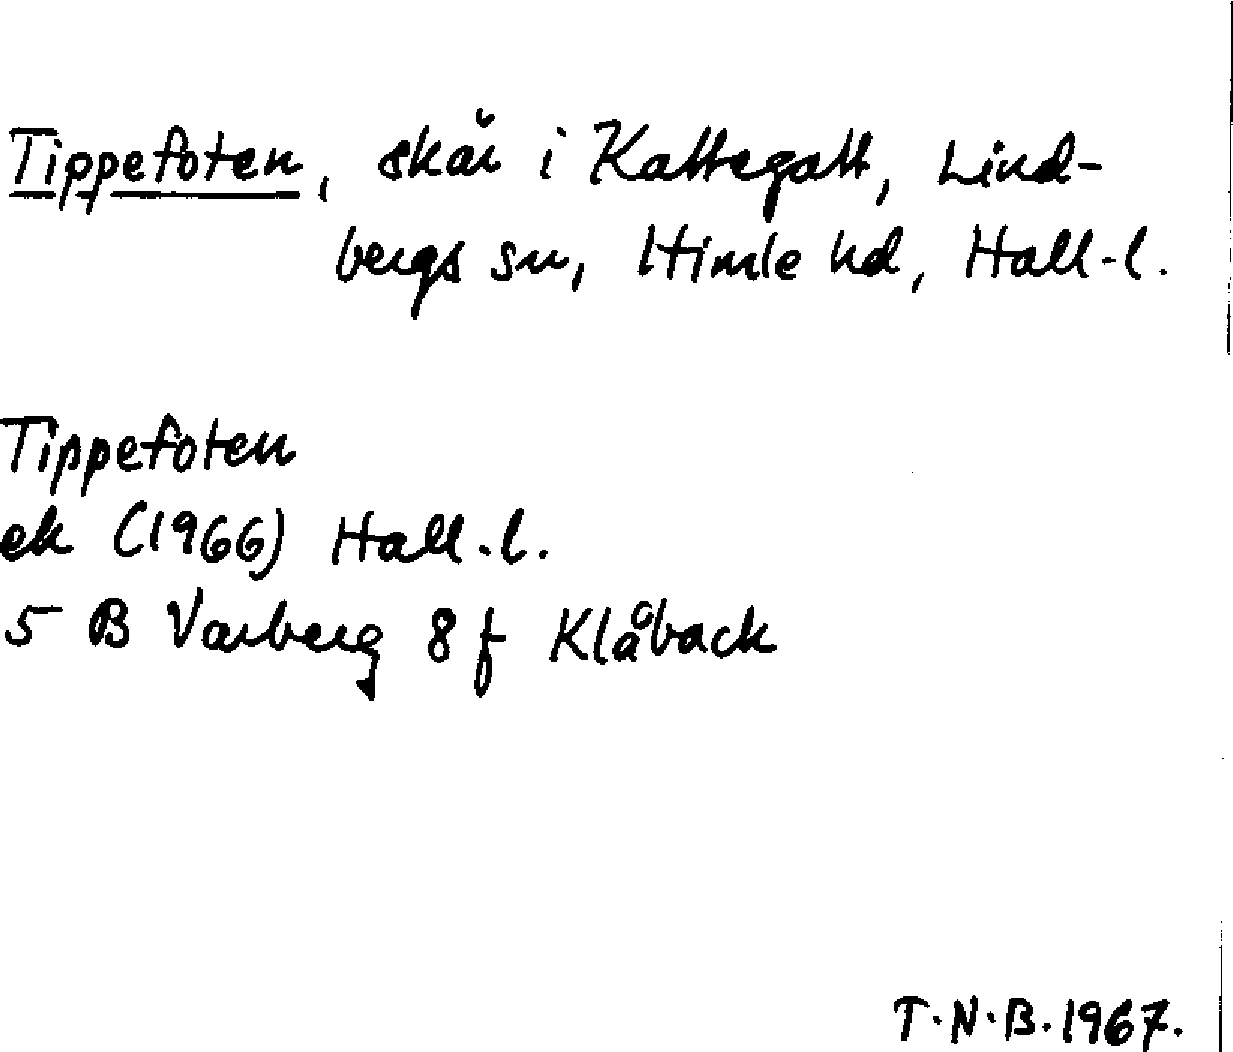 Tippefoten, skär i Kattegatt, Lind-
bergs sn, Himle hd, Hall-l.
Tippefoten
ek (1966) Hall.l.
5 B Varberg 8 f Klåback
T.N.B. 1967.